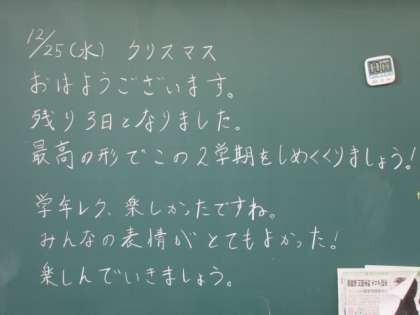 12/25(水) クリスマス
おはようございます。
残り3日となりました。
最高の形でこの2学期をしめくくりましょう!
学年レク、楽しかったですね。
みんなの表情がとてもよかった!
楽しんでいきましょう。